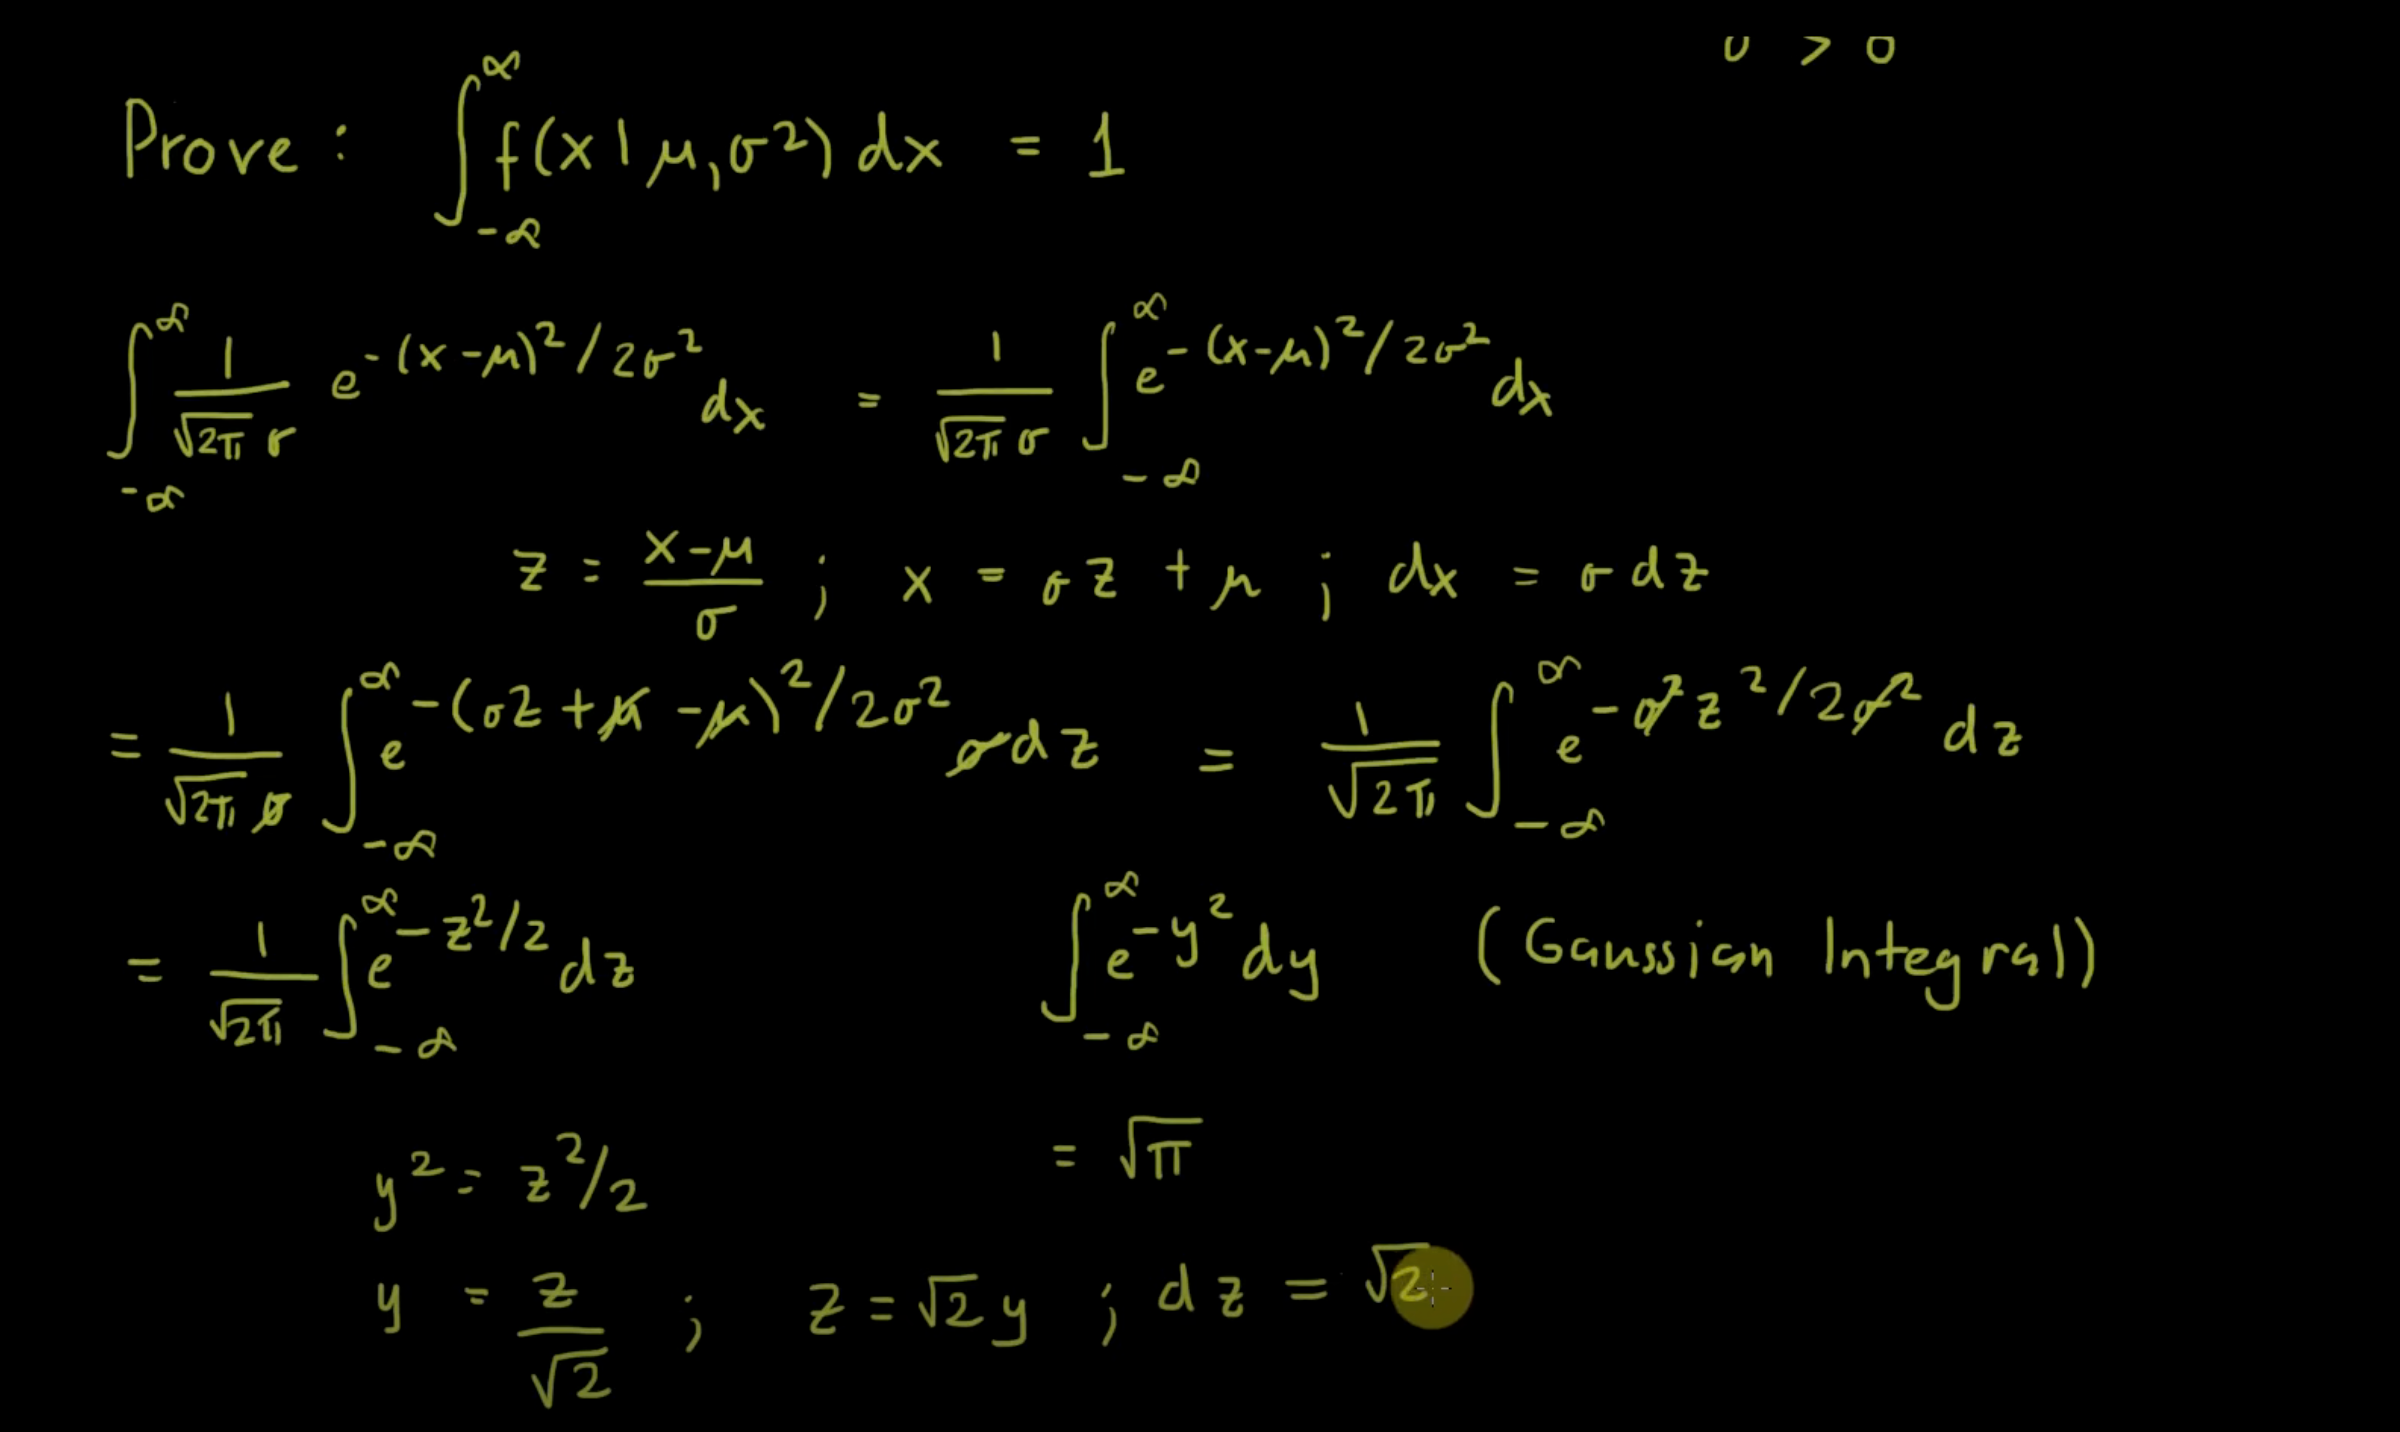 σ > 0
Prove : ∫_{-∞}^{∞} f(x | μ, σ²) dx = 1
∫_{-∞}^{∞} 1/(√(2π) σ) e^{-(x-μ)²/2σ²} dx = 1/(√(2π) σ) ∫_{-∞}^{∞} e^{-(x-μ)²/2σ²} dx
z = (x-μ)/σ ; x = σz + μ ; dx = σdz
= 1/(√(2π) σ) ∫_{-∞}^{∞} e^{-(σz+μ-μ)²/2σ²} σdz = 1/√(2π) ∫_{-∞}^{∞} e^{-σ²z²/2σ²} dz
= 1/√(2π) ∫_{-∞}^{∞} e^{-z²/2} dz ∫_{-∞}^{∞} e^{-y²} dy (Gaussian Integral)
= √π
y² = z²/2
y = z/√2 ; z = √2 y ; dz = √2